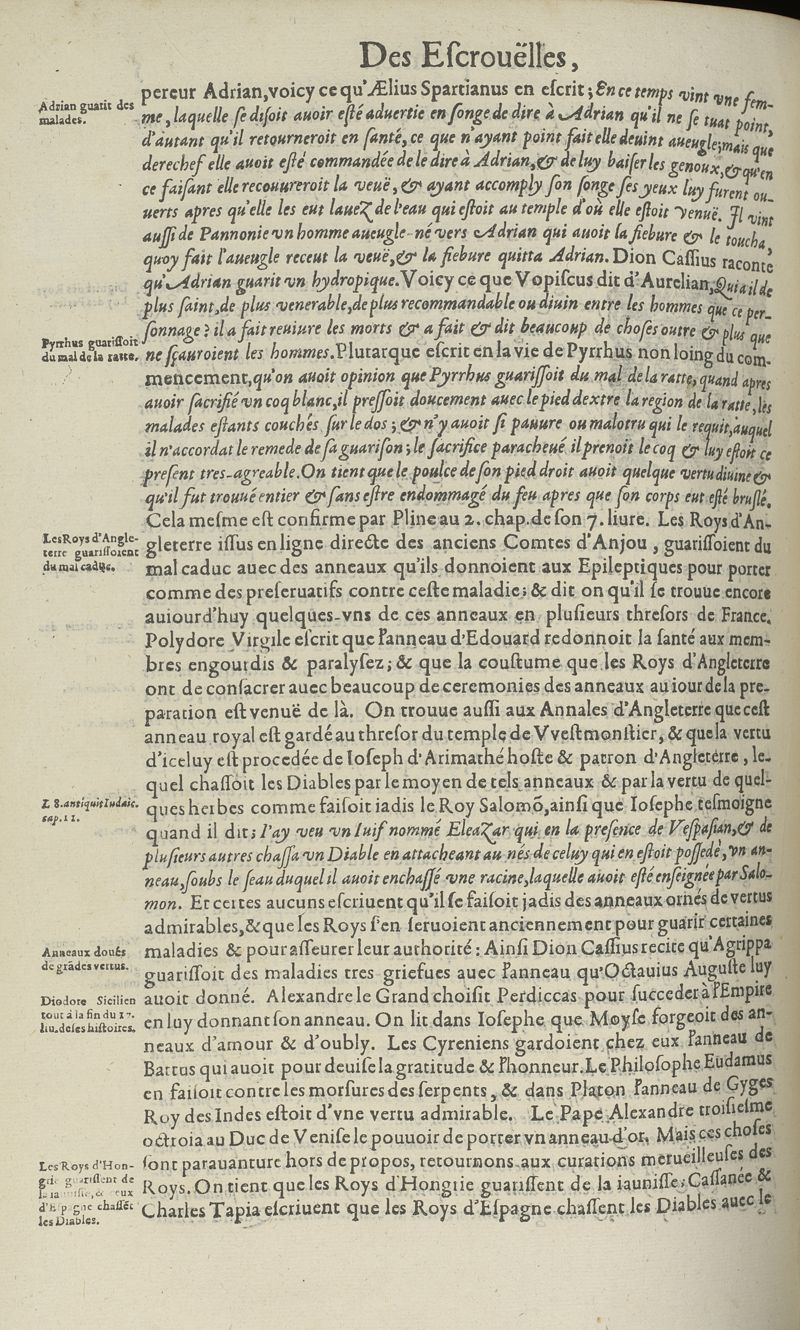 Des Eſcrouëlles,
pereur Adrian, voicy ce qu'Ælius Spartianus en eſcrit; En ce temps vint vne fem-
Adrian guarit des
malades.
me, laquelle ſe diſoit auoir eſté aduertie en ſonge de dire à Adrian qu'il ne ſe tuat point,
d'autant qu'il retourneroit en ſanté, ce que n'ayant point fait elle deuint aueugle; mais que
derechef elle auoit eſté commandée de le dire à Adrian, & de luy baiſer les genoux, & qu'en
ce faiſant elle recouureroit la veuë, & ayant accomply ſon ſonge ſes yeux luy furent ou-
uerts apres qu'elle les eut lauez de l'eau qui eſtoit au temple d'où elle eſtoit venuë. Il vint
auſſi de Pannonie vn homme aueugle-né vers Adrian qui auoit la fiebure & le toucha,
quoy fait l'aueugle receut la veuë, & la fiebure quitta Adrian. Dion Caſſius raconte
qu'Adrian guarit vn hydropique. Voicy ce que Vopiſcus dit d'Aurelian, Qui a il de
plus ſaint, de plus venerable, de plus recommandable ou diuin entre les hommes que ce per-
ſonnage? il a fait reuiure les morts & a fait & dit beaucoup de choſes outre & plus que
Pyrrhus guariſſoit
du mal de la ratte.
ne ſçauroient les hommes. Plutarque eſcrit en la vie de Pyrrhus non loing du com-
mencement, qu'on auoit opinion que Pyrrhus guariſſoit du mal de la ratte, quand apres
auoir ſacrifié vn coq blanc, il preſſoit doucement auec le pied dextre la region de la ratte, les
malades eſtants couchés ſur le dos; & n'y auoit ſi pauure ou malotru qui le requit, auquel
il n'accordat le remede de ſa guariſon; le ſacrifice paracheué il prenoit le coq & luy eſtoit ce
preſent tres-agreable. On tient que le poulce de ſon pied droit auoit quelque vertu diuine &
qu'il fut trouué entier & ſans eſtre endommagé du feu apres que ſon corps eut eſté bruſlé.
Cela meſme eſt confirme par Pline au 2. chap. de ſon 7. liure. Les Roys d'An-
Les Roys d'Angle-
terre guariſſoient
du mal caduc.
gleterre iſſus en ligne directe des anciens Comtes d'Anjou, guariſſoient du
mal caduc auec des anneaux qu'ils donnoient aux Epileptiques pour porter
comme des preſeruatifs contre ceſte maladie; & dit on qu'il ſe trouue encore
auiourd'huy quelques-vns de ces anneaux en pluſieurs threſors de France.
Polydore Virgile eſcrit que l'anneau d'Edouard redonnoit la ſanté aux mem-
bres engourdis & paralyſez; & que la couſtume que les Roys d'Angleterre
ont de conſacrer auec beaucoup de ceremonies des anneaux au iour de la pre-
paration eſt venuë de là. On trouue auſſi aux Annales d'Angleterre que ceſt
anneau royal eſt gardé au threſor du temple de Vveſtmonſtier, & que la vertu
d'iceluy eſt procedée de Ioſeph d'Arimathé hoſte & patron d'Angleterre, le-
quel chaſſoit les Diables par le moyen de tels anneaux & par la vertu de quel-
L. 8. antiquit Iudaic.
cap. 11.
ques herbes comme faiſoit iadis le Roy Salomõ, ainſi que Ioſephe teſmoigne
quand il dit; I'ay veu vn Iuif nommé Eleazar qui en la preſence de Veſpaſian, & de
pluſieurs autres chaſſa vn Diable en attacheant au nés de celuy qui en eſtoit poſſedé, vn an-
neau, ſoubs le ſeau duquel il auoit enchaſſé vne racine, laquelle auoit eſté enſeignée par Salo-
mon. Et certes aucuns eſcriuent qu'il ſe faiſoit jadis des anneaux ornés de vertus
admirables, & que les Roys ſ'en ſeruoient anciennement pour guarir certaines
Anneaux doués
de grãdes vertus.
maladies & pour aſſeurer leur authorité: Ainſi Dion Caſſius recite qu'Agrippa
guariſſoit des maladies tres griefues auec l'anneau qu'Octauius Auguſte luy
Diodore Sicilien
tout à la fin du 17.
liu. de ſes hiſtoires.
auoit donné. Alexandre le Grand choiſit Perdiccas pour ſucceder à l'Empire
en luy donnant ſon anneau. On lit dans Ioſephe que Moyſe forgeoit des an-
neaux d'amour & d'oubly. Les Cyreniens gardoient chez eux l'anneau de
Battus qui auoit pour deuiſe la gratitude & l'honneur. Le Philoſophe Eudamus
en faiſoit contre les morſures des ſerpents, & dans Platon l'anneau de Gyges
Roy des Indes eſtoit d'vne vertu admirable. Le Pape Alexandre troiſieſme
octroia au Duc de Veniſe le pouuoir de porter vn anneau d'or. Mais ces choſes
Les Roys d'Hon-
grie guariſſent de
la iauniſſe, & ceux
d'Eſpagne chaſſẽt
les Diables.
ſont parauanture hors de propos, retournons aux curations merueilleuſes des
Roys. On tient que les Roys d'Hongrie guariſſent de la iauniſſe; Caſſanée &
Charles Tapia eſcriuent que les Roys d'Eſpagne chaſſent les Diables auec le